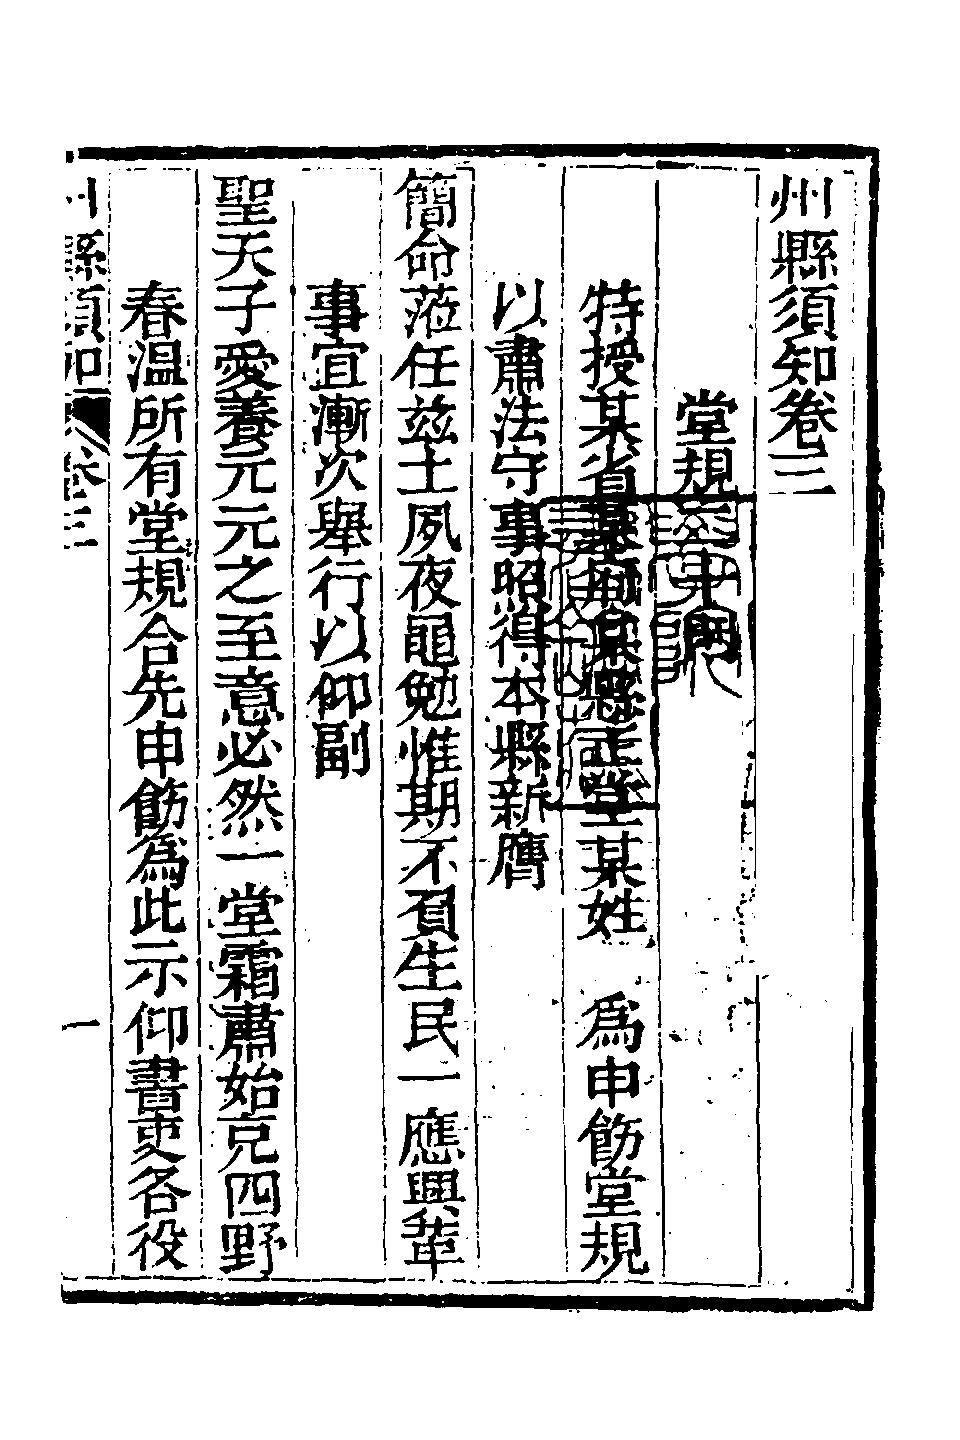 州縣須知卷三
堂規
特授某省某府某縣正堂某姓　爲申飭堂規
以肅法守事照得本縣新膺
簡命蒞任茲土夙夜黽勉惟期不負生民一應興革
事宜漸次舉行以仰副
聖天子愛養元元之至意必然一堂霜肅始克四野
春溫所有堂規合先申飭爲此示仰書吏各役
州縣須知 卷三 一